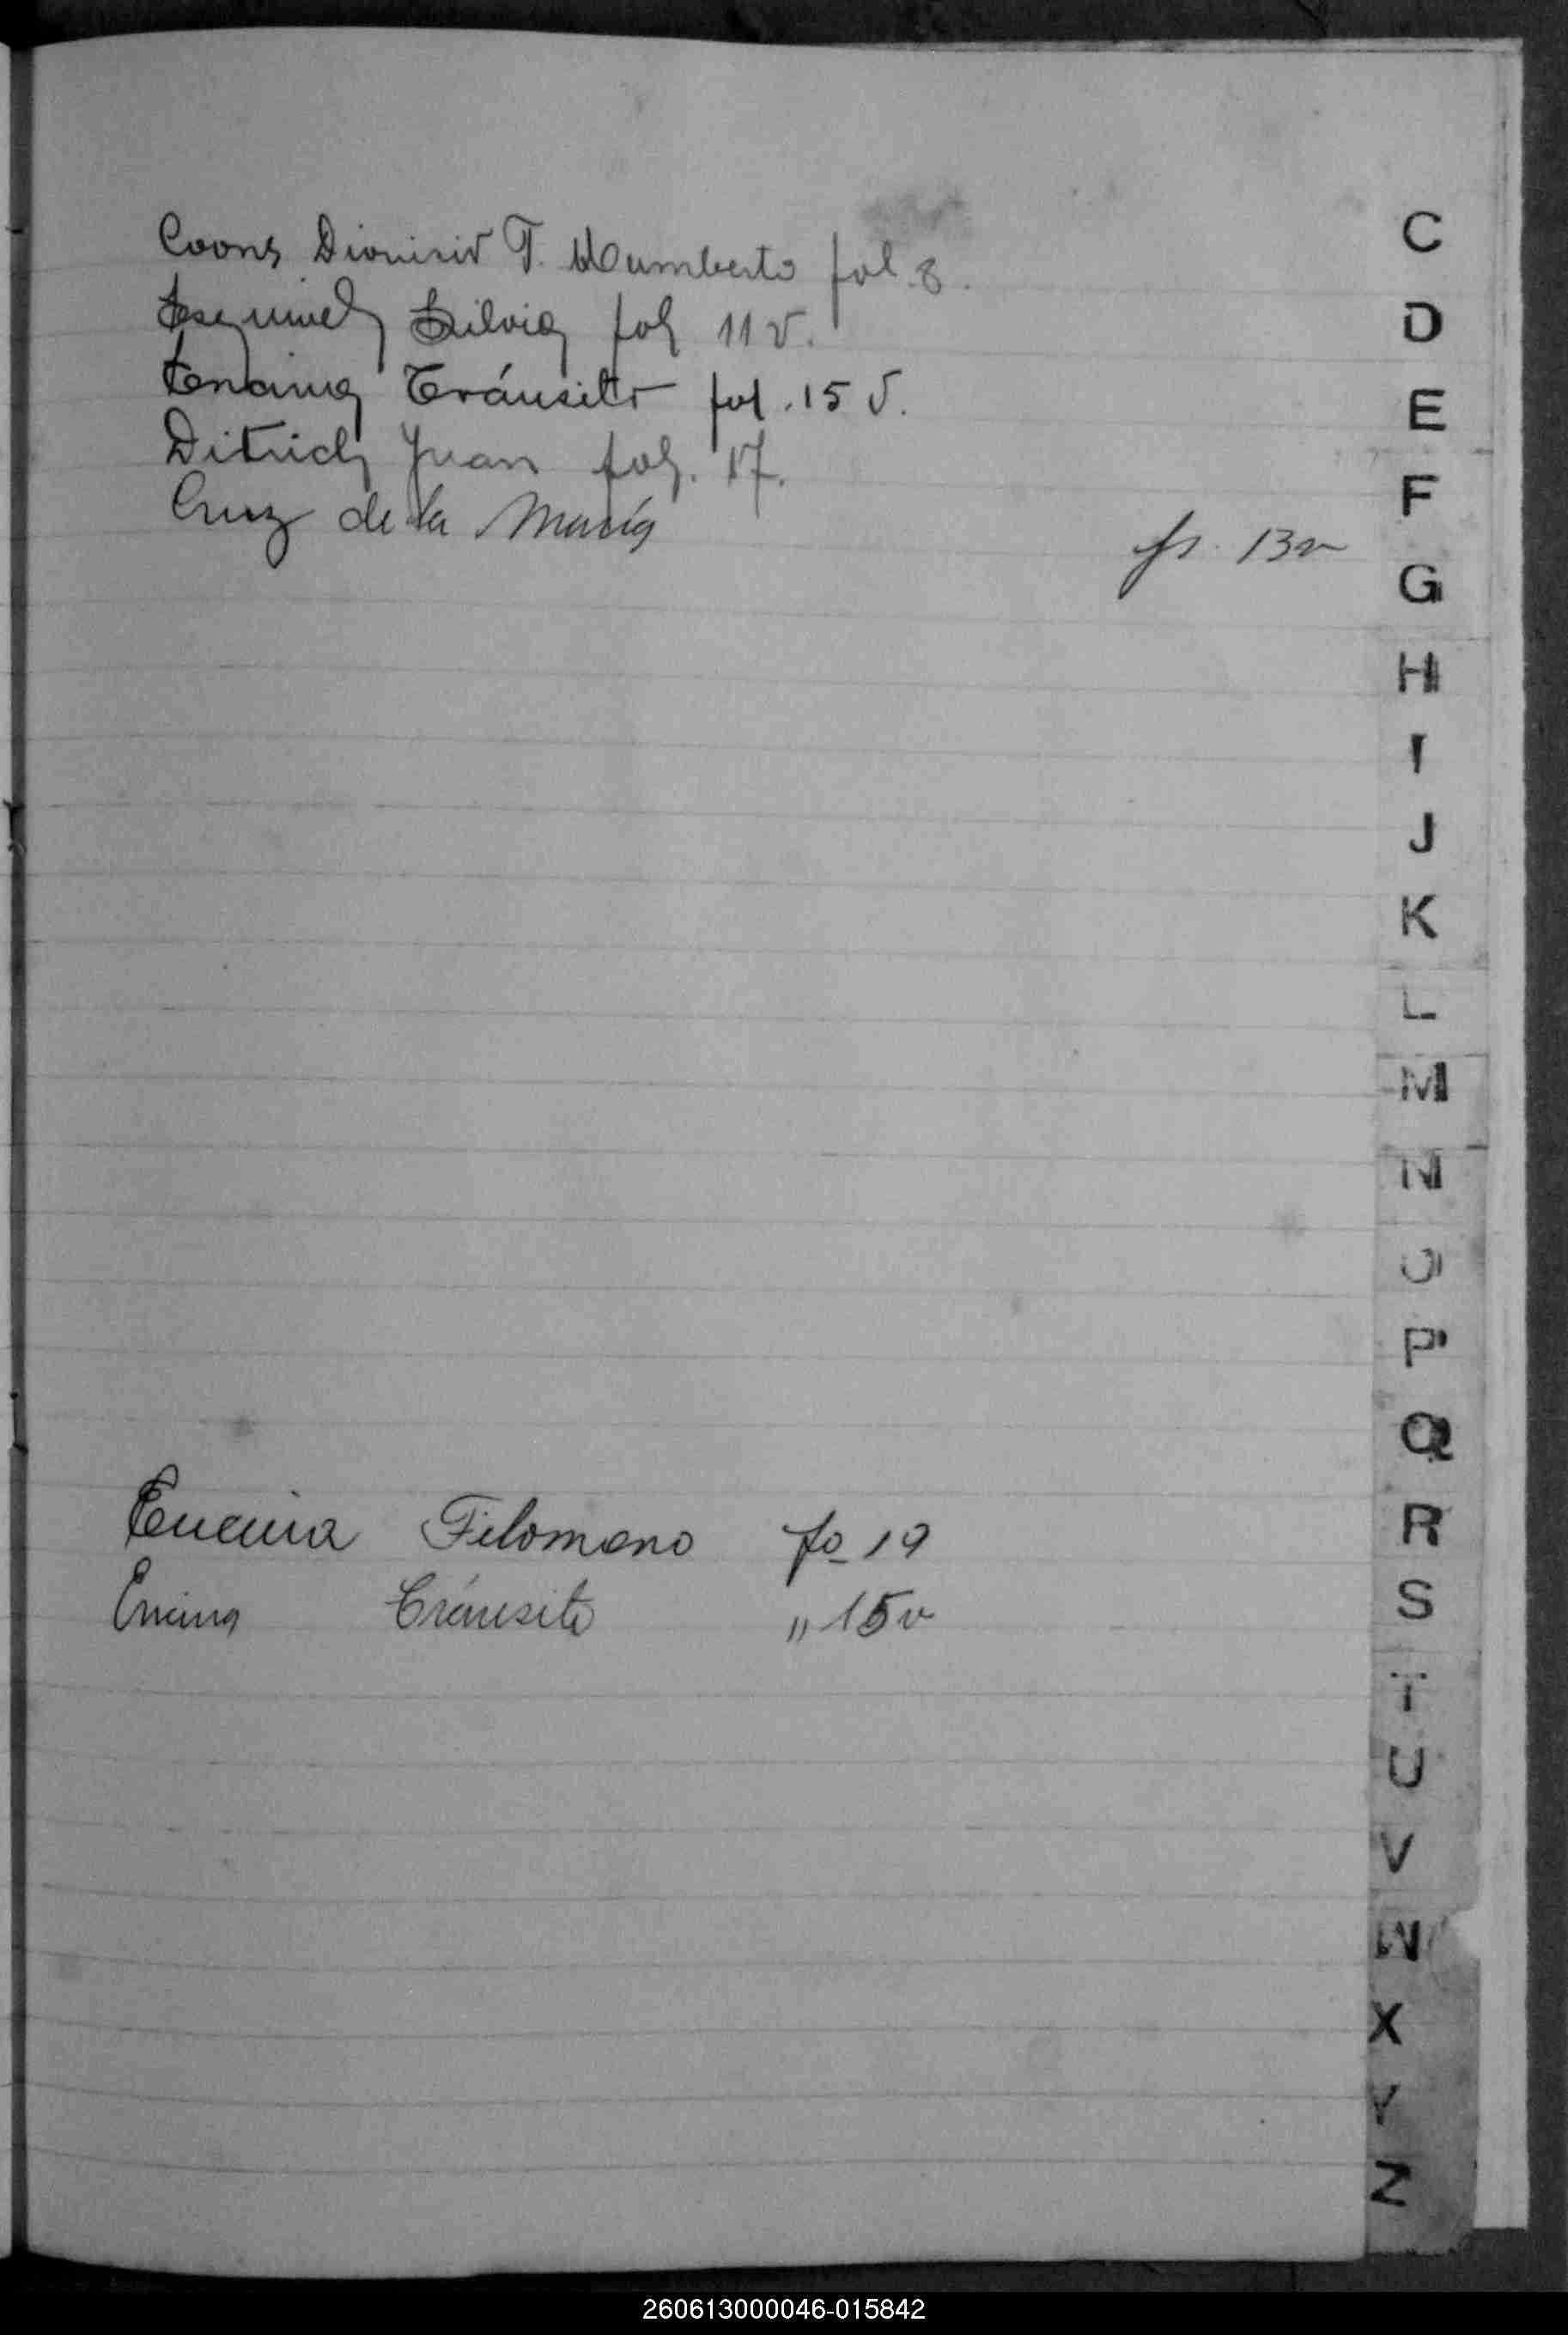 Coons Dionisio T. Humberto fol. 8.
Esquivel Silvia fol 11 v.
Encina Tránsito fol. 15 v.
Ditrich Juan fol. 17.
Cruz de la María fs. 13v
Encina Filomeno fo 19
Encina Tránsito " 15v
C
D
E
F
G
H
I
J
K
L
M
N
O
P
Q
R
S
T
U
V
W
X
Y
Z
260613000046-015842